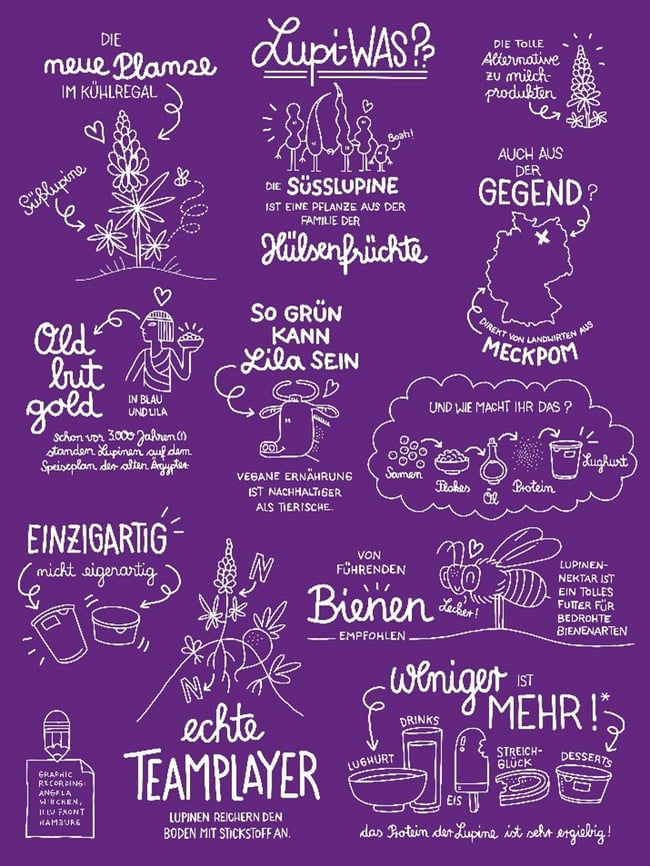 Lupi-WAS??
DIE
neue Planse
IM KÜHLREGAL
Süßlupine
Boah!
DIE SÜSSLUPINE
IST EINE PFLANZE AUS DER
FAMILIE DER
Hülsenfrüchte
DIE TOLLE
Alternative
zu milch-
produkten
AUCH AUS
DER
GEGEND?
DIREKT VON LANDWIRTEN AUS
MECKPOM
Old
but
gold
IN BLAU
UND LILA
schon vor 3000 Jahren(!)
standen Lupinen auf dem
Speiseplan der alten Ägypter
SO GRÜN
KANN
Lila SEIN
VEGANE ERNÄHRUNG
IST NACHHALTIGER
ALS TIERISCHE.
UND WIE MACHT IHR DAS?
Samen
Flakes
Öl
Protein
Lughurt
EINZIGARTIG
nicht eigenartig
N
N
echte
TEAMPLAYER
LUPINEN REICHERN DEN
BODEN MIT STICKSTOFF AN.
VON
FÜHRENDEN
Bienen
EMPFOHLEN
Lecker!
LUPINEN-
NEKTAR IST
EIN TOLLES
FUTTER FÜR
BEDROHTE
BIENENARTEN
weniger IST
MEHR!*
LUGHURT
DRINKS
EIS
STREICH-
GLÜCK
DESSERTS
das Protein der Lupine ist sehr ergiebig!
GRAPHIC
RECORDING:
ANGELA
WIECKEN,
ILLU FRONT
HAMBURG